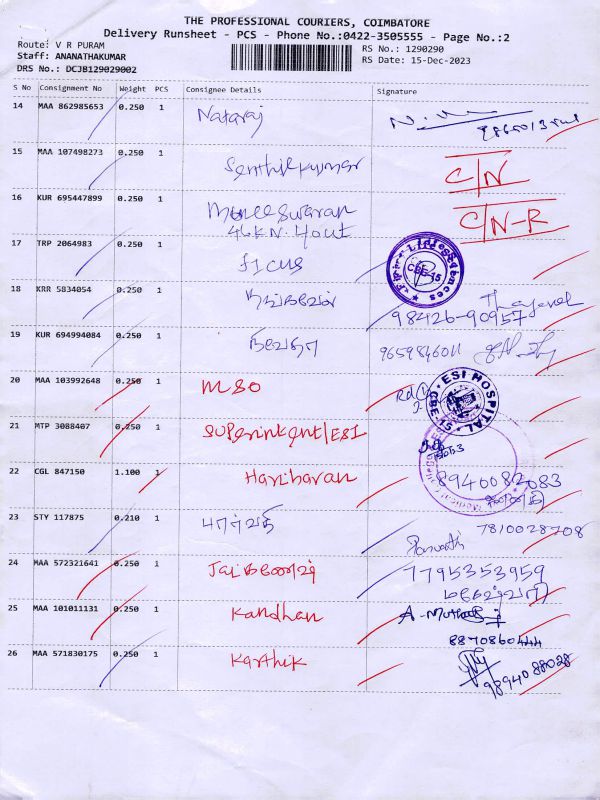 THE PROFESSIONAL COURIERS, COIMBATORE
Delivery Runsheet - PCS - Phone No.:0422-3505555 - Page No.:2
Route: V R PURAM
RS No.: 1290290
Staff: ANANATHAKUMAR
RS Date: 15-Dec-2023
DRS No.: DCJB129029002
S No Consignment No Weight PCS Consignee Details Signature
14 MAA 862985653 0.250 1 Nataraj
15 MAA 107498273 0.250 1 Senthilkumar C/N
16 KUR 695447899 0.250 1 Muneeswaran C/N-R
46 KN. 4 out
17 TRP 2064983 0.250 1 ficus
18 KRR 5834054 0.250 1 98426-90957
19 KUR 694994084 0.250 1 9659846011
20 MAA 103992648 0.250 1 MSO ESI HOSPITAL
21 MTP 3088407 0.250 1 Superintent/ESI
22 CGL 847150 1.100 1 Hariharan 8940082083
23 STY 117875 0.210 1 7810028708
24 MAA 572321641 0.250 1 7795353959
25 MAA 101011131 0.250 1 Kandhan
8870860444
26 MAA 571830175 0.250 1 Karthik
9894088028